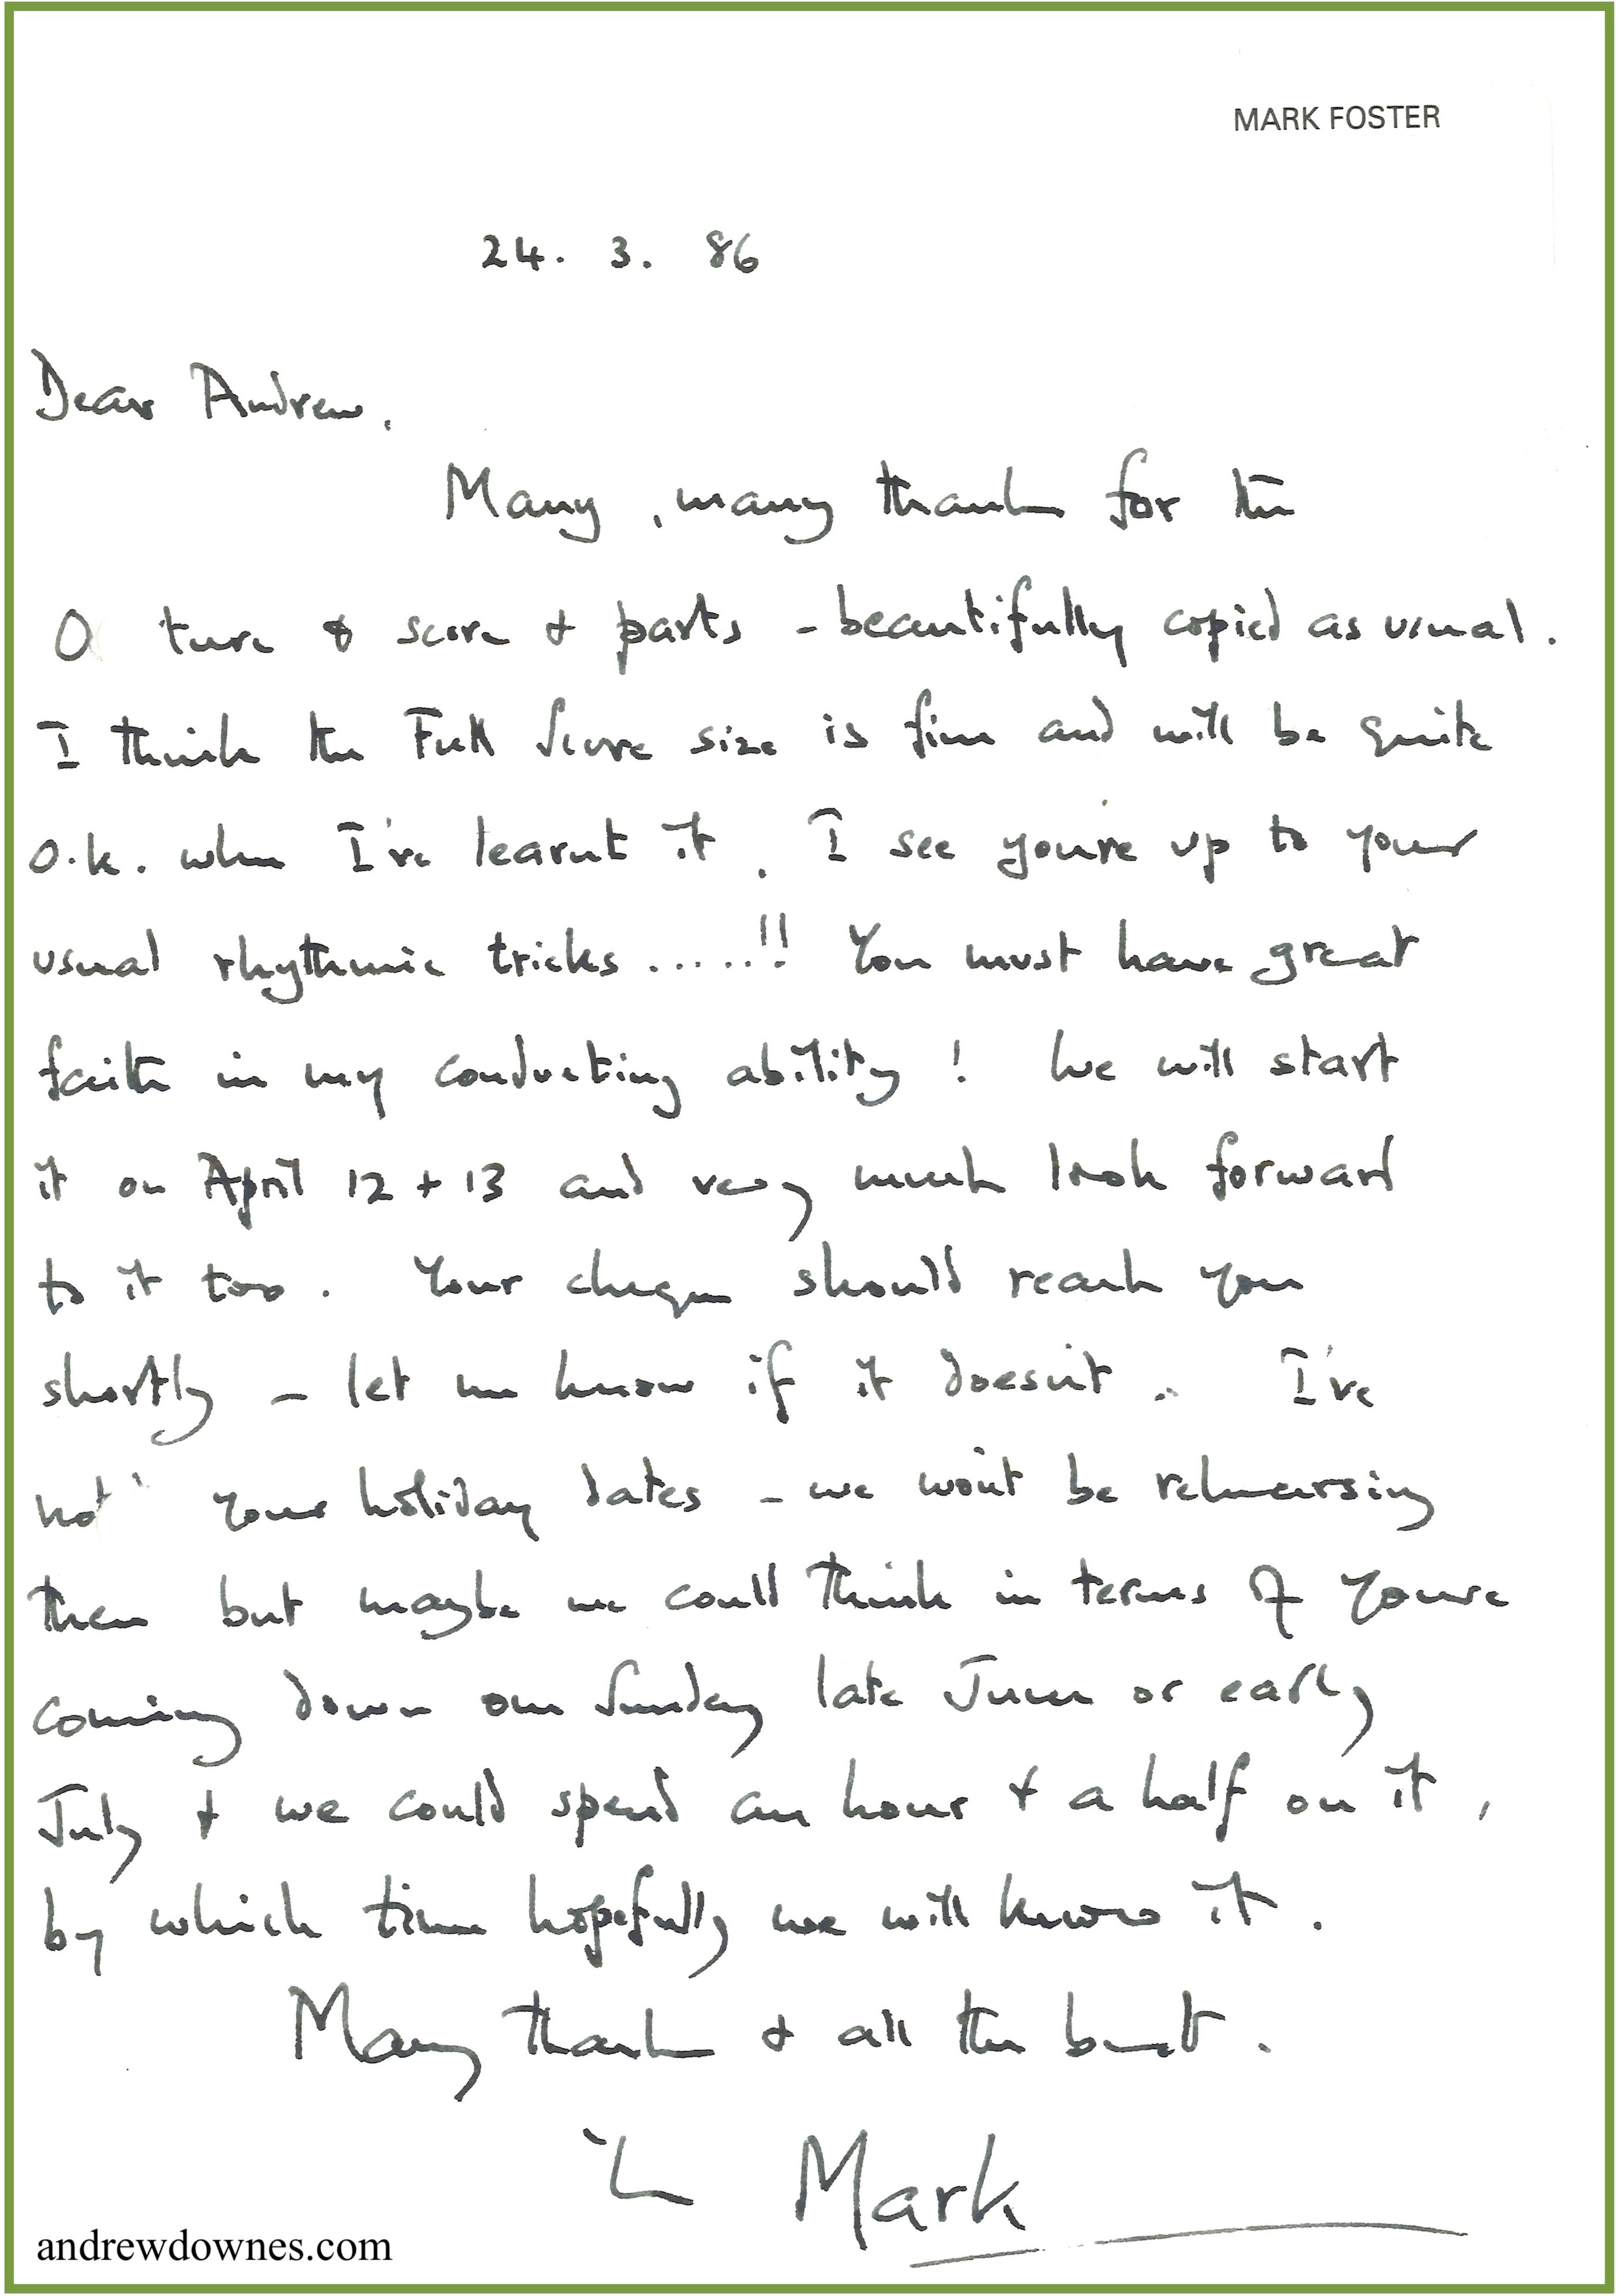 MARK FOSTER
24. 3. 86
Dear Andrew,
Many, many thanks for the
O ture & score & parts - beautifully copied as usual.
I think the Full Score size is fine and will be quite
o.k. when I've learnt it. I see you're up to your
usual rhythmic tricks .....!! You must have great
faith in my conducting ability! We will start
it on April 12 + 13 and very much look forward
to it too. Your cheque should reach you
shortly - let me know if it doesn't. I've
not your holiday dates - we won't be rehearsing
then but maybe we could think in terms of
coming down one Sunday late June or early
July & we could spend an hour & a half on it,
by which time hopefully we will know it.
Many thanks & all the best.
Mark
andrewdownes.com